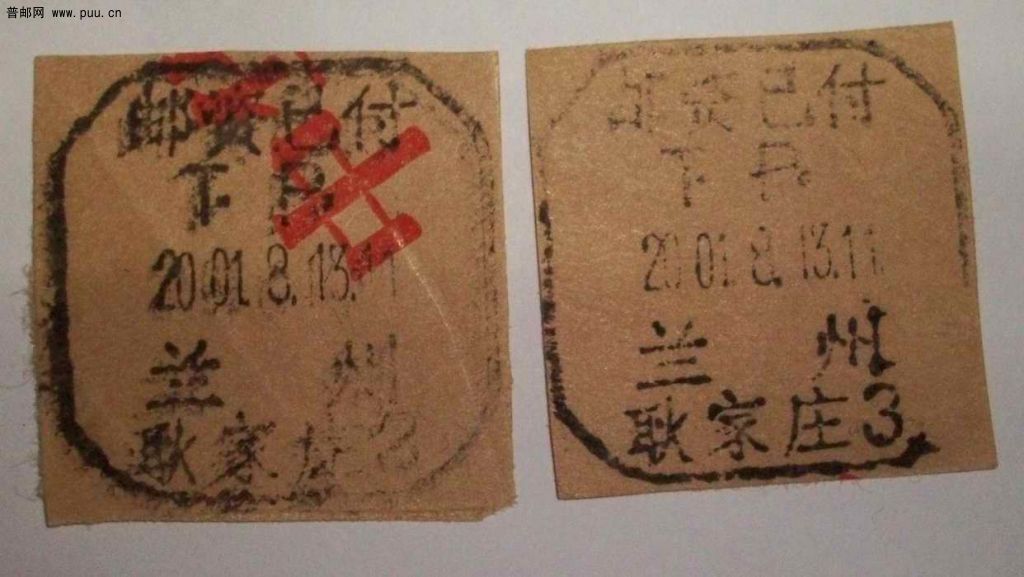 普邮网 www.puu.cn
邮资已付
T.P.
2001.8.13.11
兰 州
耿家庄3
邮资已付
T.P.
2001.8.13.11
兰 州
耿家庄3